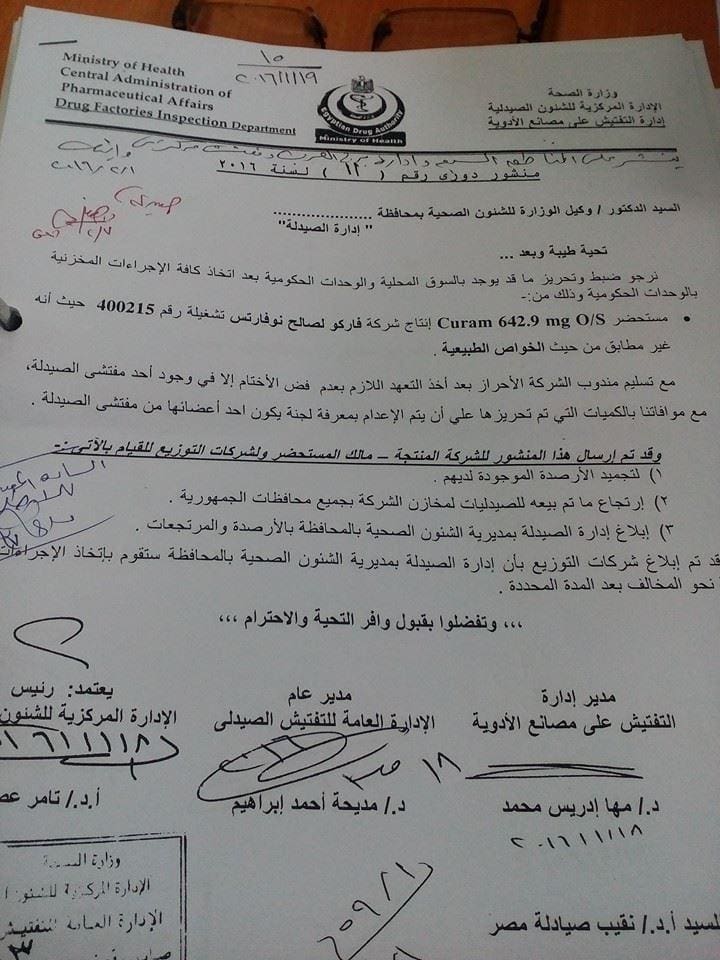 Ministry of Health
Central Administration of
Pharmaceutical Affairs
Drug Factories Inspection Department
١٥
٢٠١٦/١/١٩
Egyptian Drug Authority
Ministry of Health
وزارة الصحة
الإدارة المركزية للشئون الصيدلية
إدارة التفتيش على مصانع الأدوية
منشور دوري رقم ( ١٢ ) لسنة ٢٠١٦
٢٠١٦/٢/١
السيد الدكتور / وكيل الوزارة للشئون الصحية بمحافظة ......................
" إدارة الصيدلة"
تحية طيبة وبعد ...
نرجو ضبط وتحريز ما قد يوجد بالسوق المحلية والوحدات الحكومية بعد اتخاذ كافة الإجراءات المخزنية
بالوحدات الحكومية وذلك من:-
• مستحضر Curam 642.9 mg O/S إنتاج شركة فاركو لصالح نوفارتس تشغيلة رقم 400215 حيث أنه
غير مطابق من حيث الخواص الطبيعية .
مع تسليم مندوب الشركة الأحراز بعد أخذ التعهد اللازم بعدم فض الأختام إلا في وجود أحد مفتشى الصيدلة،
مع موافاتنا بالكميات التي تم تحريزها علي أن يتم الإعدام بمعرفة لجنة يكون احد أعضائها من مفتشى الصيدلة .
وقد تم إرسال هذا المنشور للشركة المنتجة – مالك المستحضر ولشركات التوزيع للقيام بالآتي :-
١) لتجميد الأرصدة الموجودة لديهم .
٢) إرتجاع ما تم بيعه للصيدليات لمخازن الشركة بجميع محافظات الجمهورية .
٣) إبلاغ إدارة الصيدلة بمديرية الشئون الصحية بالمحافظة بالأرصدة والمرتجعات .
قد تم إبلاغ شركات التوزيع بأن إدارة الصيدلة بمديرية الشئون الصحية بالمحافظة ستقوم بإتخاذ الإجراءات
نحو المخالف بعد المدة المحددة .
،،، وتفضلوا بقبول وافر التحية والاحترام ،،،
مدير إدارة
التفتيش على مصانع الأدوية
د./ مها إدريس محمد
٢٠١٦/١/١٨
مدير عام
الإدارة العامة للتفتيش الصيدلى
١٨
د./ مديحة أحمد إبراهيم
يعتمد: رئيس
الإدارة المركزية للشئون
أ.د./ تامر
وزارة الصحة
الإدارة المركزية للشئون
الإدارة العامة للتفتيش
السيد أ.د./ نقيب صيادلة مصر